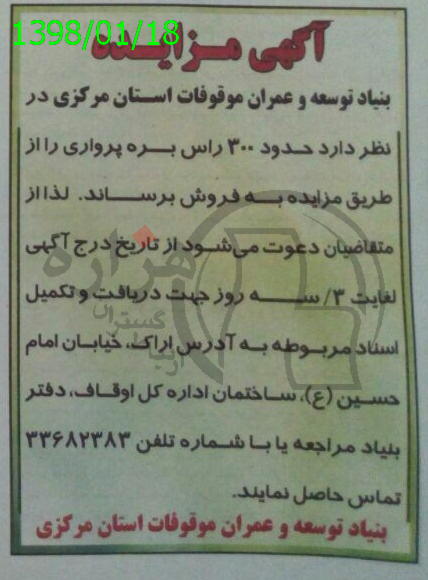 1398/01/18
آگهی مزایده
بنیاد توسعه و عمران موقوفات استان مرکزی در
نظر دارد حدود ۳۰۰ راس بره پرواری را از
طریق مزایده به فروش برساند. لذا از
متقاضیان دعوت می‌شود از تاریخ درج آگهی
لغایت ۳/ سه روز جهت دریافت و تکمیل
اسناد مربوطه به آدرس اراک، خیابان امام
حسین (ع)، ساختمان اداره کل اوقاف، دفتر
بنیاد مراجعه یا با شماره تلفن ۳۳۶۸۲۳۸۳
تماس حاصل نمایند.
بنیاد توسعه و عمران موقوفات استان مرکزی
هزاره
گستران